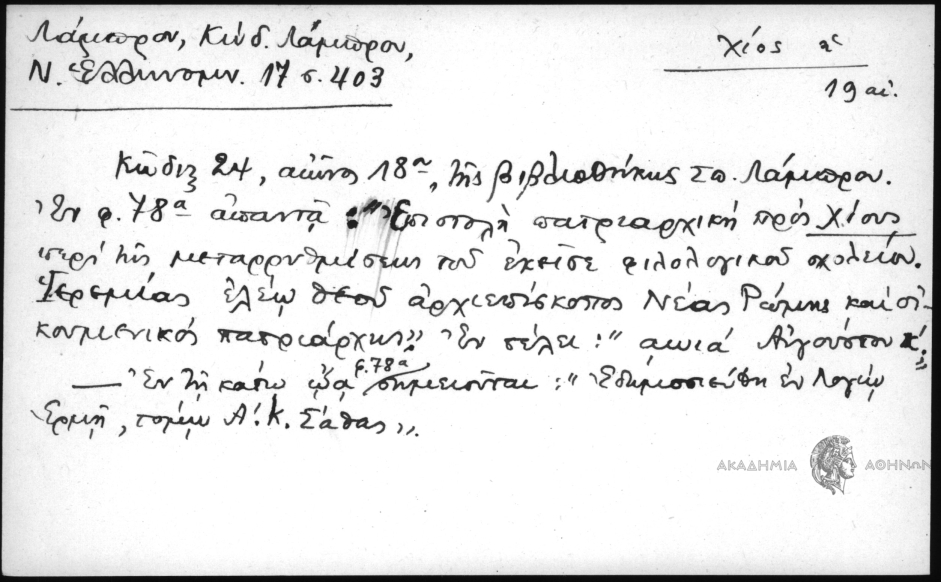 Λάμπρου, Κώδ. Λάμπρου,
Ν. Ἑλληνομν. 17 σ. 403
Χίος
19 αἰ.
Κῶδιξ 24, αἰῶνος 18ου, τῆς βιβλιοθήκης Σπ. Λάμπρου.
Ἐν φ. 78α ἀπαντᾷ : "Ἐπιστολὴ πατριαρχικὴ πρὸς Χίους
περὶ τῆς μεταρρυθμίσεως τοῦ ἐκεῖσε φιλολογικοῦ σχολείου.
Ἱερεμίας ἐλέῳ θεοῦ ἀρχιεπίσκοπος Νέας Ρώμης καὶ οἰ-
κουμενικὸς πατριάρχης". Ἐν τέλει : " αωια Αὐγούστου κ΄."
— Ἐν τῇ κάτω ᾤᾳ φ.78α σημειοῦται : "Ἐδημοσιεύθη ἐν Λογίῳ
Ἑρμῇ, τόμῳ Α΄. Κ. Σάθας".
ΑΚΑΔΗΜΙΑ ΑΘΗΝΩΝ